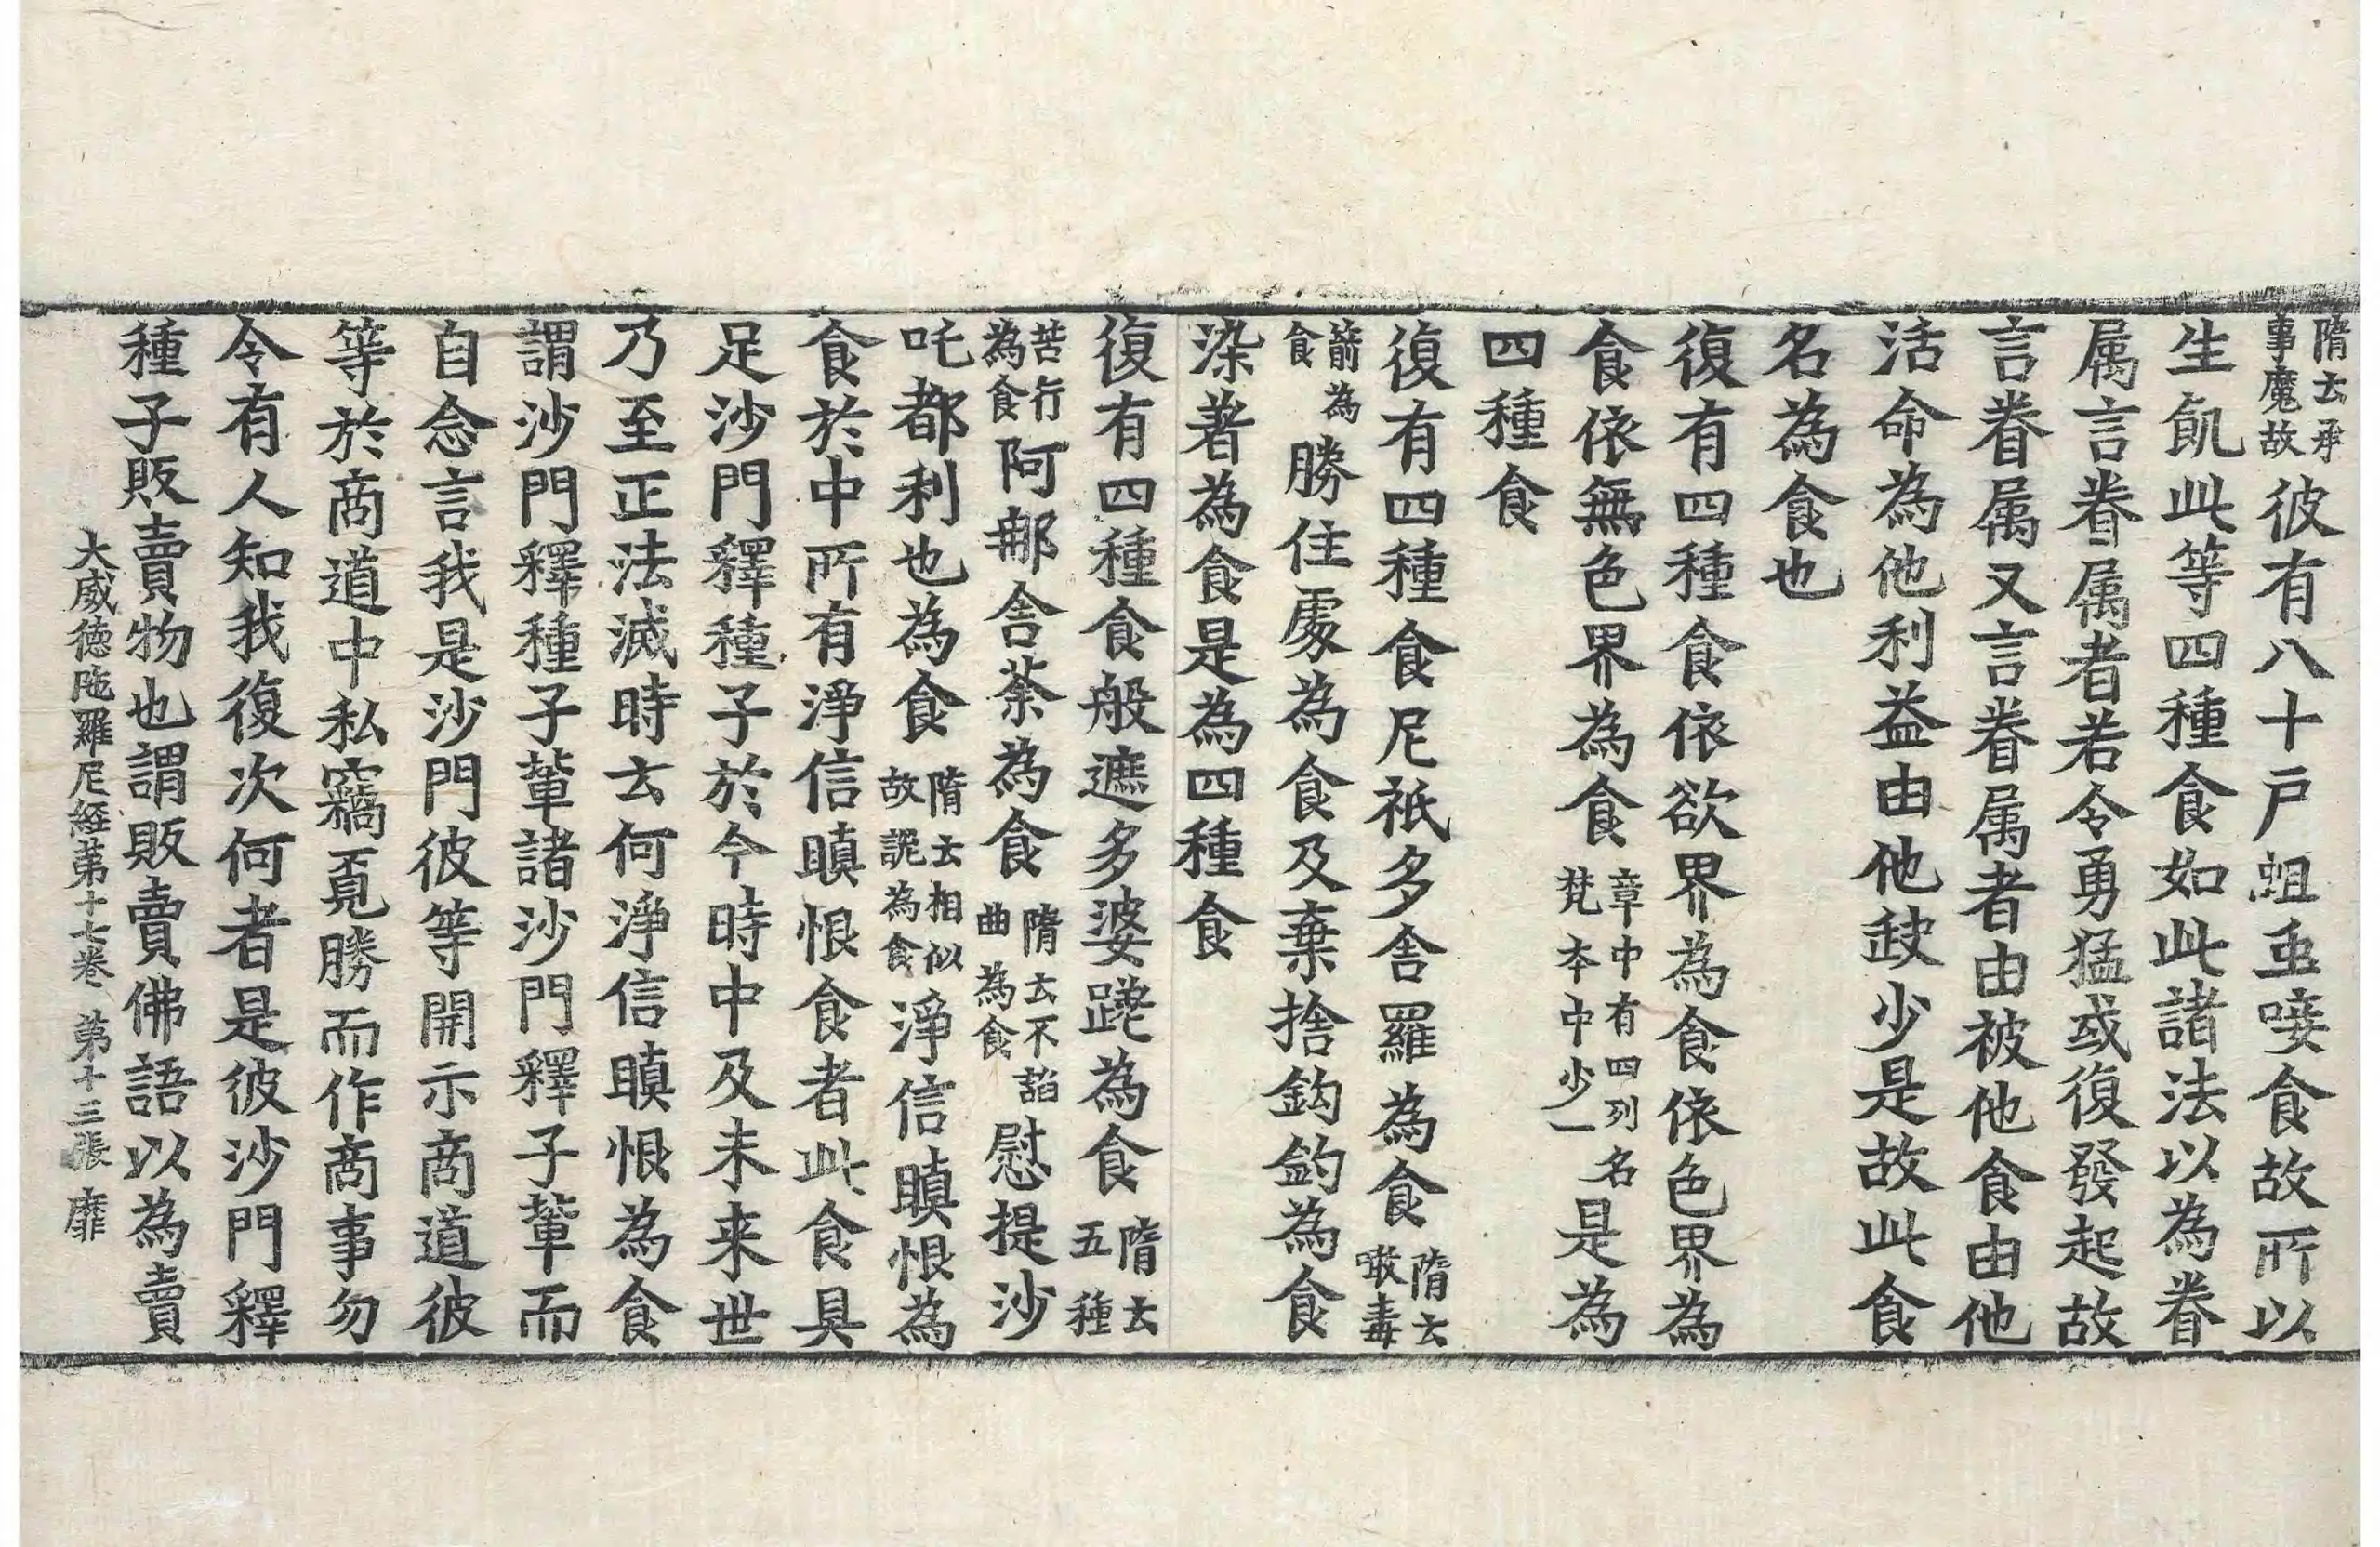 隋云承事魔故彼有八十戶蛆虫唼食故所以
生飢此等四種食如此諸法以為眷
属言眷属者若令勇猛或復發起故
言眷属又言眷属者由被他食由他
活命為他利益由他䟦少是故此食
名為食也
復有四種食依欲界為食依色界為
食依無色界為食章中有四列名梵本中少一是為
四種食
復有四種食尼祇多舍羅為食隋云噉毒
箭為食勝住處為食及棄捨鈎釣為食
染著為食是為四種食
復有四種食般遮多婆跣為食隋云五種
苦行為食阿郍舍荼為食隋云不諂曲為食慰提沙
吒都利也為食隋云相似故詭為食淨信瞋恨為
食於中所有淨信瞋恨食者此食具
足沙門釋種子於今時中及未来世
乃至正法滅時云何淨信瞋恨為食
謂沙門釋種子輩諸沙門釋子輩而
自念言我是沙門彼等開示商道彼
等於商道中私竊覔勝而作商事勿
令有人知我復次何者是彼沙門釋
種子販賣物也謂販賣佛語以為賣
大威德陁羅尼経苐十七卷 苐十三張 靡